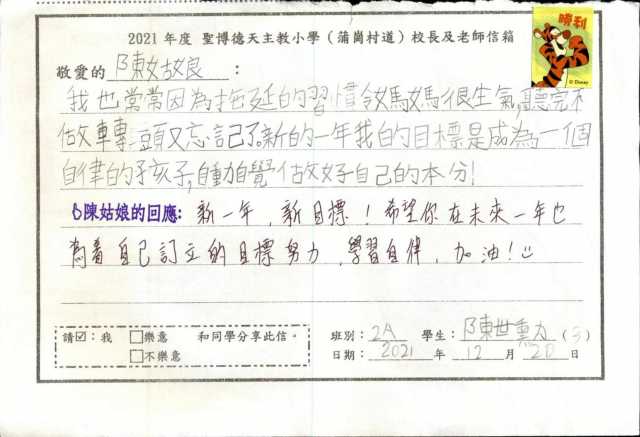 2021年度 聖博德天主教小學（蒲崗村道）校長及老師信箱
勝利
© Disney
敬愛的 陳姑娘：
我也常常因為拖延的習慣令媽媽很生氣,聽完不
做轉頭又忘記了。新的一年我的目標是成為一個
自律的孩子,自動自覺做好自己的本分!
陳姑娘的回應: 新一年，新目標！希望你在未來一年也
為着自己訂立的目標努力，學習自律，加油！
請☑：我 □樂意 和同學分享此信。
□不樂意
班別：2A 學生：陳世勳（3）
日期：2021 年 12 月 20 日